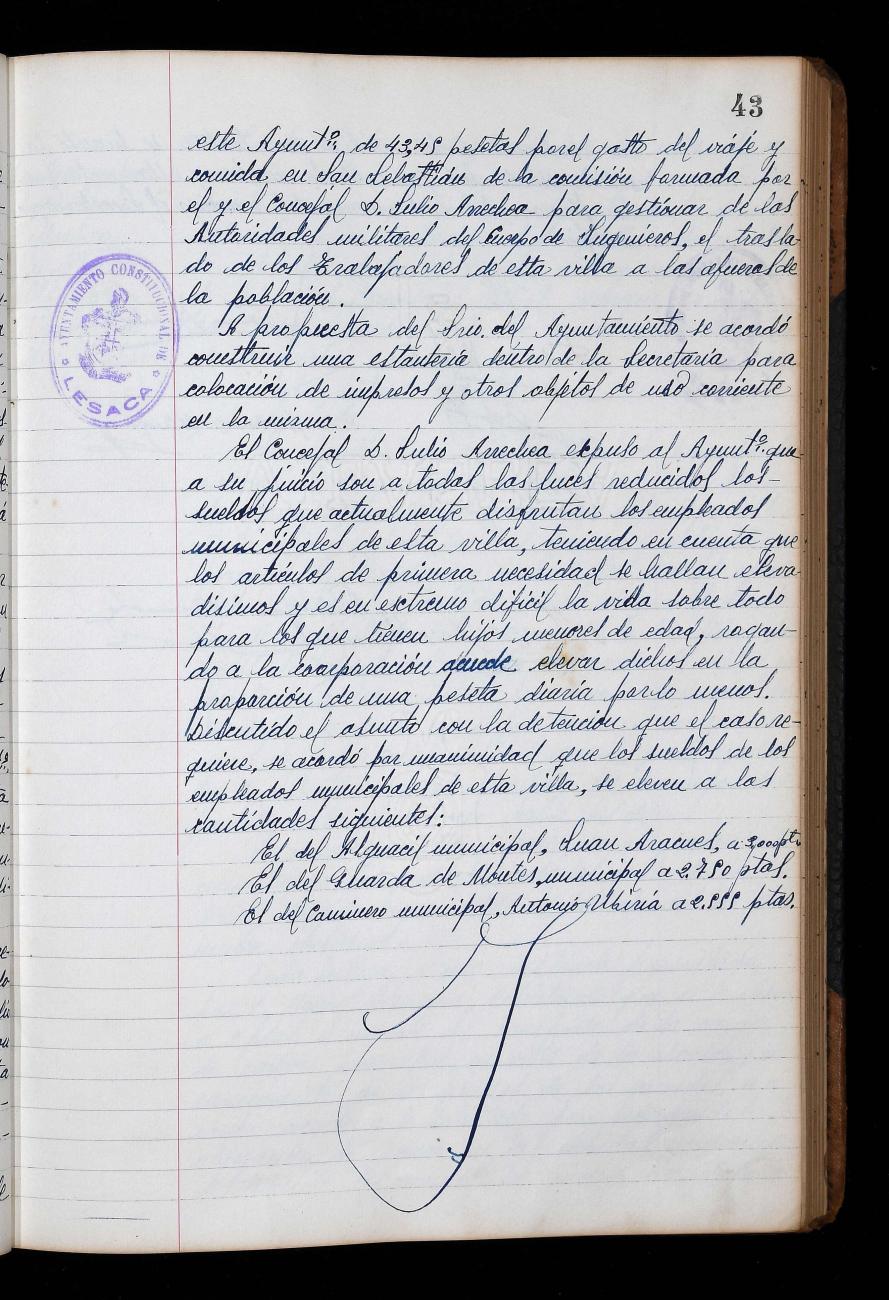 43
este Ayuntº. de 43,45 pesetas por el gasto del viaje y
comida en San Sebastián de la comisión formada por
el y el Concejal D. Julio Arrechea para gestionar de las
Autoridades militares del Cuerpo de Ingenieros, el trasla-
do de los Trabajadores de esta villa a las afueras de
la población.
A propuesta del Srio. del Ayuntamiento se acordó
construir una estantería dentro de la Secretaría para
colocación de impresos y otros objetos de uso corriente
en la misma.
El Concejal D. Julio Arrechea expuso al Ayuntº. que
a su juicio son a todas las luces reducidos los
sueldos que actualmente disfrutan los empleados
municipales de esta villa, teniendo en cuenta que
los artículos de primera necesidad se hallan eleva
disimos y es en extremo difícil la vida sobre todo
para los que tienen hijos menores de edad, rogan-
do a la coorporación acuerde elevar dichos en la
proporción de una peseta diaria por lo menos.
Discutido el asunto con la detención que el caso re-
quiere, se acordó por unanimidad que los sueldos de los
empleados municipales de esta villa, se eleven a las
cantidades siguientes:
El del Alguacil municipal, Juan a 3,000 pts
El del Guarda de Montes, municipal a 2.750 ptas.
El del Caminero municipal, Antonio Ubiria a 2.555 ptas.
AYUNTAMIENTO CONSTITUCIONAL DE
LESACA